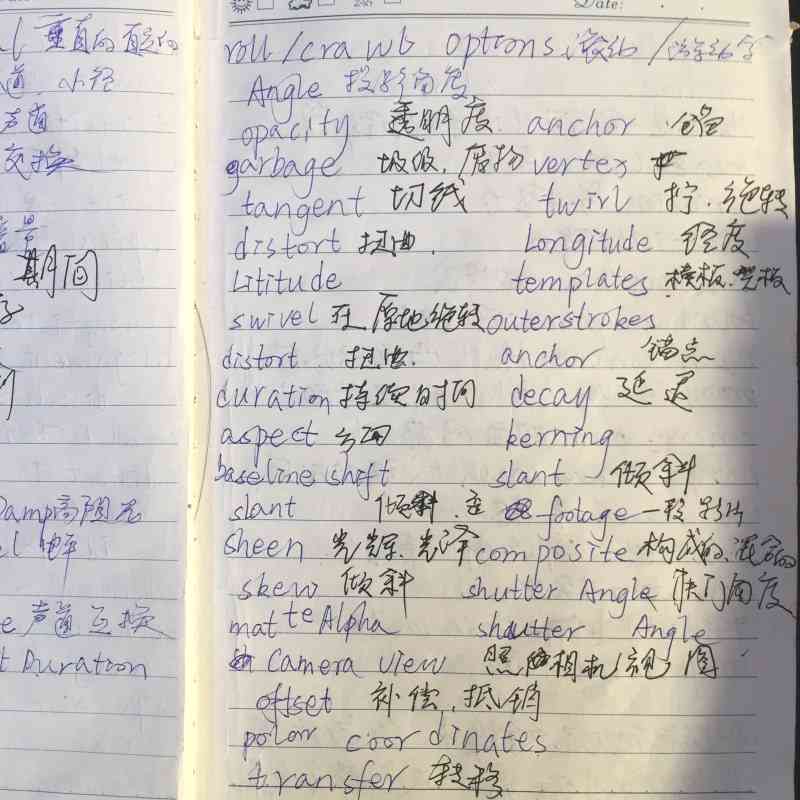 Date:
l 垂直的 直立的
道 小径
声道
交换
景
期间
Damp高阻尼
el 电平
e 声道互换
t Duration
roll/crawl options 滚动/游动文字
Angle 投影角度
opacity 透明度 anchor
garbage 垃圾,废物 vertex
tangent 切线 twirl 拧.绝转
distort 扭曲. Longitude 经度
Lititude templates 模板.
swivel 在原地绝转 outerstrokes
distort 扭曲. anchor 锚点
duration 持续时间 decay 延迟
aspect 方面 kerning
baseline shift slant 倾斜
slant 倾斜. footage 一段影片
sheen 光辉.光泽 composite 构成的.混合的
skew 倾斜 shutter Angle 快门角度
matte Alpha shutter Angle
Camera view 照相机视图
offset 补偿.抵销
polar coordinates
transfer 转移